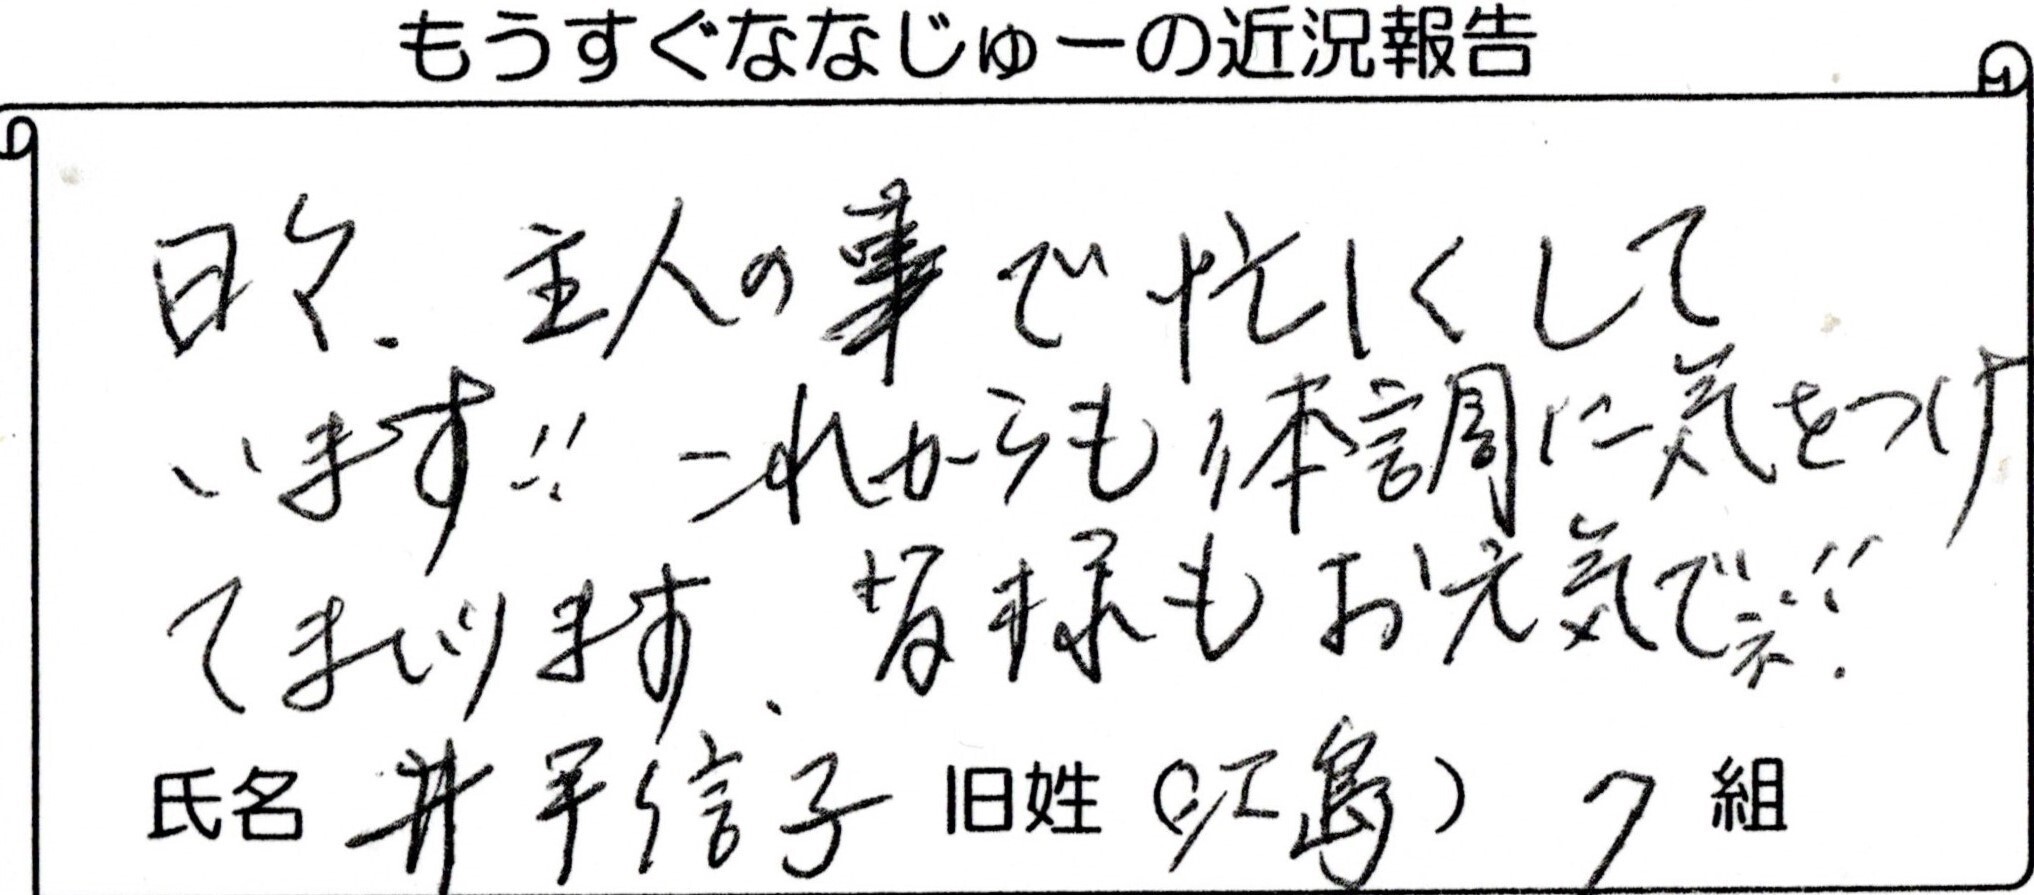 もうすぐななじゅーの近況報告
日々、主人の事で忙しくして
います!! これからも体調に気をつけ
てまいります、皆様もお元気でネ!!
氏名 井平信子 旧姓(江島) 7組